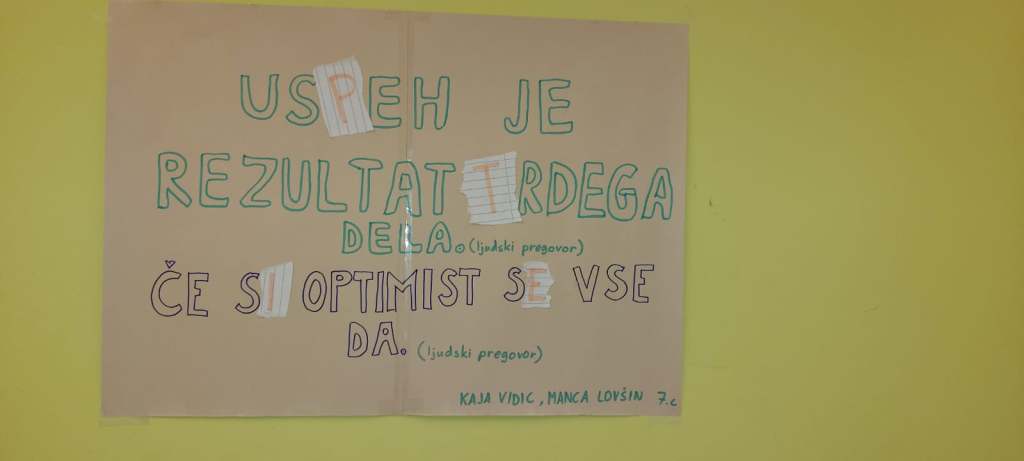 USPEH JE
REZULTAT TRDEGA
DELA. (ljudski pregovor)
ČE SI OPTIMIST SE VSE
DA. (ljudski pregovor)
KAJA VIDIC, MANCA LOVŠIN 7.c